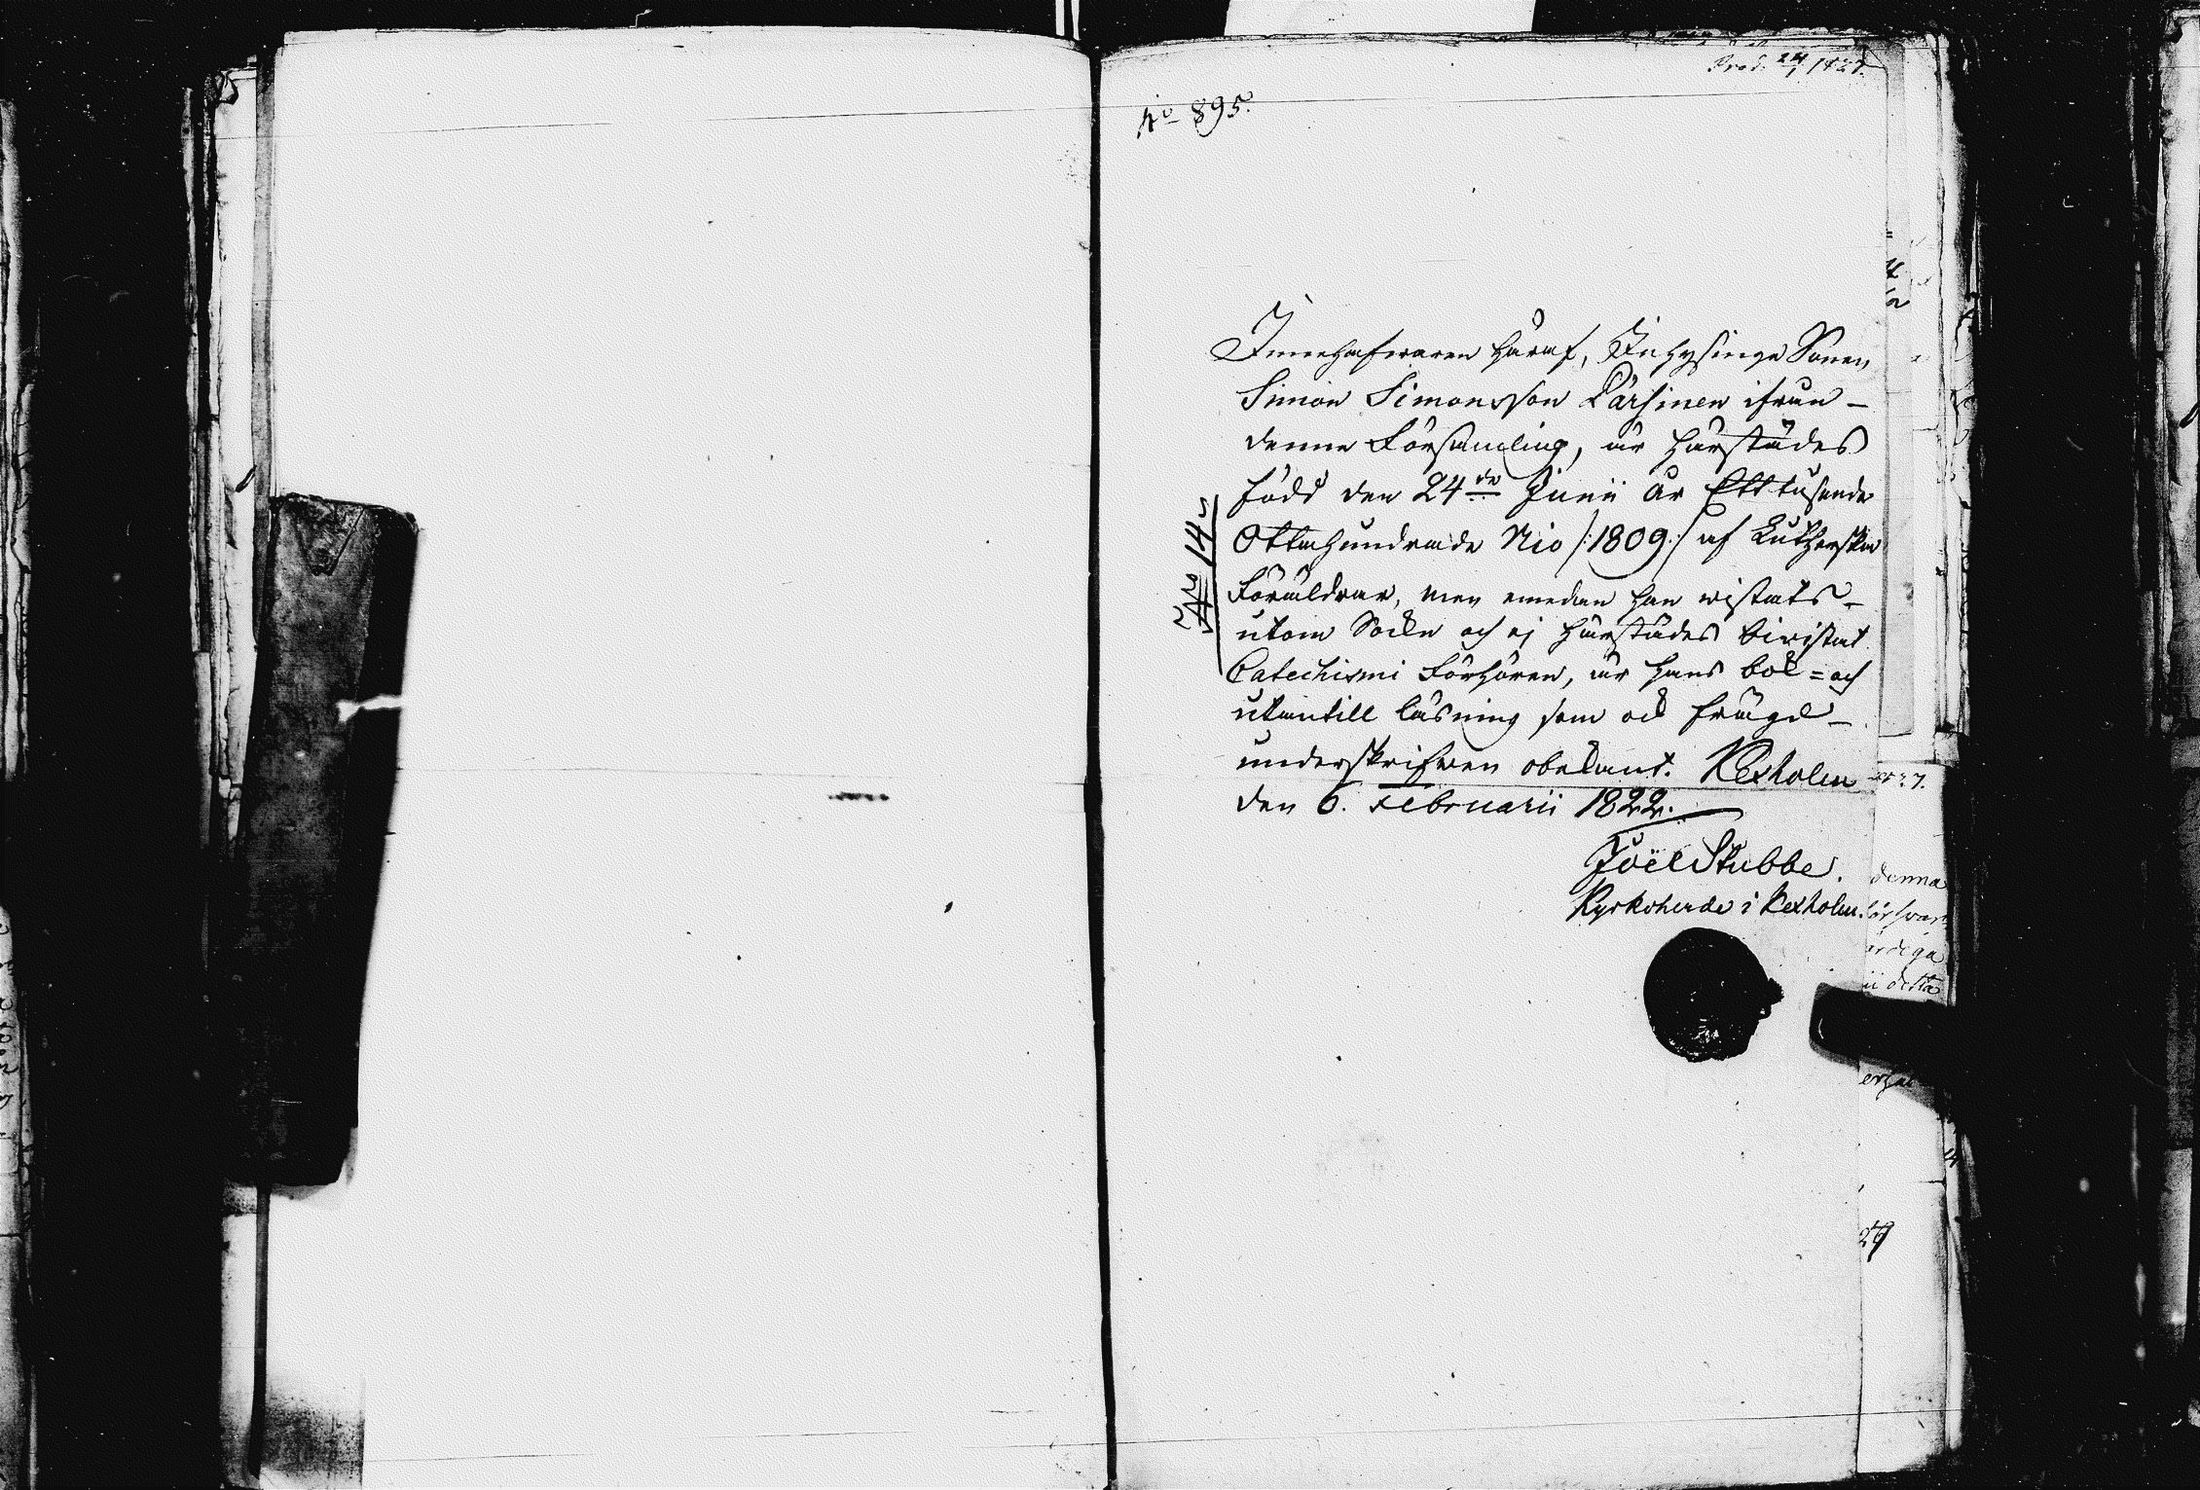 Prod. 24/1 1827.
No 895.
Innehafwaren häraf, Inhysinge Sonen
Simon Simonsson Pärsinen ifrån
denna Församling, är härstädes
född den 24de Junii År Ett tusende
Ottahundrade Nio /:1809:/ af Lutherska
Föräldrar, men emedan han wistats
utom Sockn och ej härstädes biwistat
Catechismi Förhören, är hans bok= och
utantill läsning som ock frägd
underskrifwen obekant. Kexholm
den 6. Februarii 1822.
Joël Stubbe.
Kyrkoherde i Kexholm.
No 14
denna
ardiga
detta